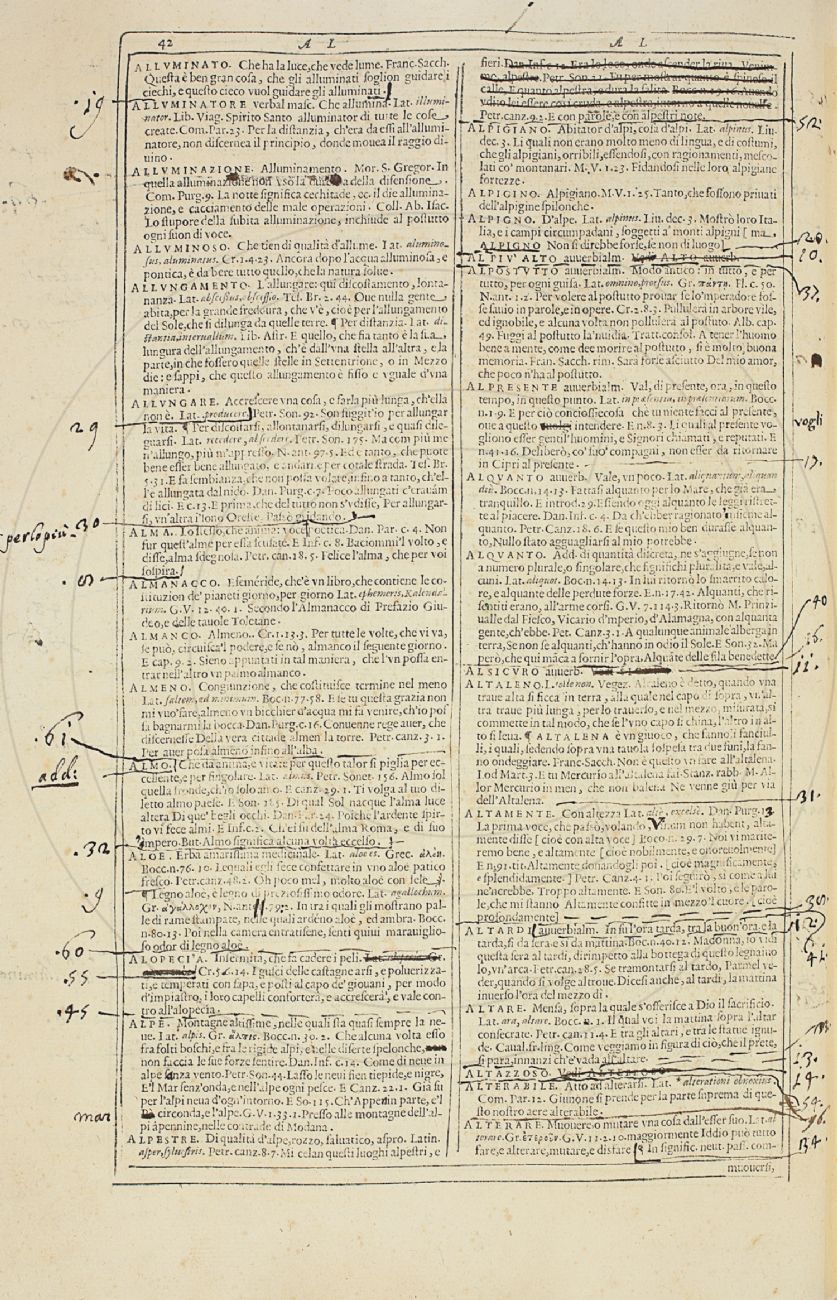 42 AL AL
ALLVMINATO. Che ha la luce, che vede lume. Franc. Sacch.
Questa è ben gran cosa, che gli alluminati soglion guidare i
ciechi, e questo cieco vuol guidare gli alluminati.
19
ALLVMINATORE verbal masc. Che allumina. Lat. illumi-
nator. Lib. Viag. Spirito Santo alluminator di tutte le cose
create. Com. Par. 23. Per la distanzia, ch'era da essi all'allumi-
natore, non discernea il principio, donde mouea il raggio di-
uino.
ALLVMINAZIONE. Alluminamento. Mor. S. Gregor. In
quella alluminazione non vsò la della disensione.
Com. Purg. 9. La notte significa cechitade, ec. il die allumina-
zione, e cacciamento delle male operazioni. Coll. Ab. Isac.
Lo stupore della subita alluminazione, inchiude al postutto
ogni suon di voce.
ALLVMINOSO. Che tien di qualità d'allume. Lat. alumino-
sus, aluminatus. Cr. 1.4.23. Ancora dopo l'acqua alluminosa, e
pontica, è da bere tutto quello, che la natura solue.
ALLVNGAMENTO. L'allungare: qui discostamento, lonta-
nanza. Lat. abscessus, abscessio. Tes. Br. 2. 44. Oue nulla gente
abita, per la grande freddura, che v'è, cioè per l'allungamento
del Sole, che si dilunga da quelle terre. ¶ Per distanzia. Lat. di-
stantia, interuallum. Lib. Astr. E quello, che fia tanto è la sua
lungura dell'allungamento, ch'è dall'vna stella all'altra, e la
parte, in che fossero quelle stelle in Settentrione, o in Mezzo
die: e sappi, che questo allungamento è fisso e vguale d'vna
maniera.
ALLVNGARE. Accrescere vna cosa, e farla più lunga, ch'ella
non è. Lat. producere. Petr. Son. 92. Son fuggit'io per allungar
29
la vita. ¶ Per discostarsi, allontanarsi, dilungarsi, e quasi dile-
guarsi. Lat. recedere, abscedere. Petr. Son. 175. Ma com più me
n'allungo, più m'appresso. N. ant. 97.5. Ed è tanto, che puote
bene esser bene allungato, e andare per cotale strada. Tes. Br.
5.31. E fa sembianza, che non possa volare, infino a tanto, ch'el-
l'è allungata dal nido. Dan. Purg. c. 7. Poco allungati c'erauàm
di lici. E c. 13. E prima, che del tutto non s'vdisse, Per allungar-
si, vn'altra i' sono Oreste. Passò gridando.
perlopiù 30
ALMA. Lo stesso, che anima: voce poetica. Dan. Par. c. 4. Non
fur quest'alme per essa scusate. E Inf. c. 8. Baciommi 'l volto, e
disse, alma sdegnosa. Petr. can. 18. 5. Felice l'alma, che per voi
sospira.
ALMANACCO. Efeméride, ch'è vn libro, che contiene le co-
stituzion de' pianeti giorno, per giorno Lat. ephemeris, Kalenda-
rium. G.V. 12. 40. 1. Secondo l'Almanacco di Prefazio Giu-
deo, e delle tauole Toletane.
ALMANCO. Almeno. Cr. 1. 13. 3. Per tutte le volte, che vi va,
se può, circuisca 'l podere, e se nò, almanco il seguente giorno.
E cap. 9. 2. Sieno appuntati in tal maniera, che l'vn possa en-
trar nell'altro vn palmo almanco.
ALMENO. Congiunzione, che costituisce termine nel meno
Lat. saltem, ad minimum. Boc. n. 77. 58. E se tu questa grazia non
mi vuo' fare, almeno vn bicchier d'acqua mi fa venire, ch'io pos-
sa bagnarmi la bocca. Dan. Purg. c. 16. Conuenne rege auer, che
discernesse Della vera cittade almen la torre. Petr. canz. 3. 1.
Per auer posa almeno infino all'alba.
61
add:
ALMO. Che dà anima, e vita: e per questo talor si piglia per ec-
cellente, e per singolare. Lat. almus. Petr. Sonet. 156. Almo sol
quella fronde, ch'io solo amo. E canz. 29. 1. Ti volga al tuo di-
letto almo paese. E Son. 185. Di qual Sol nacque l'alma luce
altera Di que' begli occhi. Dan. Par. 24. Poichè l'ardente spir-
to vi fece almi. E Inf. c. 2. Ch'ei fu dell'alma Roma, e di suo
impero. But. Almo significa alcuna volta eccelso.
32
ALOE. Erba amarissima medicinale. Lat. aloes. Grec. ἀλόη.
Bocc. n. 76. 10. Le quali egli fece confettare in vno aloè patico
fresco. Petr. canz. 48. 2. Oh poco mel, molto aloè con fele.
9
¶ Legno aloè, è legno di preziosissimo odore. Lat. agallochum.
Gr. ἀγάλλοχον. N. ant. 79. 2. In irzi quali gli mostrano pal-
le di rame stampate, nelle quali ardeno aloè, ed ambra. Bocc.
n. 80. 13. Poi nella camera entratisene, sentì quiui marauiglio-
so odor di legno aloè.
60
ALOPECIA. Infermità, che fa cadere i peli.
55
Cr. 5. 6. 14. I gusci delle castagne arsi, e poluerizza-
ti, e temperati con sapa, e posti al capo de' giouani, per modo
d'impiastro, i loro capelli conforterà, e accrescerà, e vale con-
tro all'alopecia.
45
ALPE. Montagne altissime, nelle quali sta quasi sempre la ne-
ue. Lat. alpis. Gr. ἄλπις. Bocc. n. 30. 2. Che alcuna volta esso
fra folti boschi, e fra le rigide alpi, e nelle diserte spelonche,
non faccia le sue forze sentire. Dan. Inf. c. 14. Come di neue in
alpe senza vento. Petr. Son. 44. Lasso le neui fien tepide, e nigre,
E 'l Mar senz'onda, e nell'alpe ogni pesce. E Canz. 22. 1. Già su
per l'alpi neua d'ogn'intorno. E So. 115. Ch'Appenin parte, e 'l
mar
circonda, e l'alpe. G.V. 1. 33. 1. Presso alle montagne dell'al-
pi apennine, nelle contrade di Modana.
ALPESTRE. Di qualità d'alpe, rozzo, saluatico, aspro. Latin.
asper, syluestris. Petr. canz. 8. 7. Mi celan questi luoghi alpestri, e
fieri.
Petr. canz. 9. 2. E con parole, e con alpestri note.
52.
ALPIGIANO. Abitator d'alpi, cosa d'alpi. Lat. alpinus. Liu.
dec. 3. Li quali non erano molto meno di lingua, e di costumi,
che gli alpigiani, orribili, essendosi, con ragionamenti, mesco-
lati co' montanari. M. V. 1. 23. Fidandosi nelle loro alpigiane
fortezze.
ALPIGINO. Alpigiano. M. V. 1. 25. Tanto, che fossono priuati
dell'alpigine spilonche.
ALPIGNO. D'alpe. Lat. alpinus. Liu. dec. 3. Mostrò loro Ita-
lia, e i campi circumpadani, soggetti a' monti alpigni [ ma
ALPIGNO Non si direbbe forse, se non di luogo]
20.
ALPIV' ALTO auuerbialm.
10.
ALPOSTVTTO auuerbialm. Modo antico: in tutto, e per
tutto, per ogni guisa. Lat. omnino, prorsus. Gr. πάντως. Fl. c. 50.
37
N. ant. 1. 2. Per volere al postutto prouar se lo 'mperadore fos-
se sauio in parole, e in opere. Cr. 2. 8. 3. Pullulerà in arbore vile,
ed ignobile, e alcuna volta non pullulerà al postuto. Alb. cap.
49. Fuggi al postutto la 'nuidia. Tratt. consol. A tener l'huomo
bene a mente, come dee morire al postutto, si è molto, buona
memoria. Fran. Sacch. rim. Sarà forse asciutto Del mio amor,
che poco n'ha al postutto.
ALPRESENTE auuerbialm. Val, di presente, ora, in questo
tempo, in questo punto. Lat. in præsentia, in præsentiarum. Bocc.
n. 1. 9. E per ciò conciossiecosa che tu niente facci al presente,
oue a questo intendere. E n. 8. 3. Li quali al presente vo-
vogli
gliono esser gentil'huomini, e Signori chiamati, e reputati. E
n. 41. 16. Deliberò, co' suo' compagni, non esser da ritornare
in Cipri al presente.
ALQVANTO auuerb. Vale, vn poco. Lat. aliquantum, aliquan-
diu. Bocc. n. 14. 13. Fattasi alquanto per lo Mare, che già era
tranquillo. E introd. 29. Essendo oggi alquanto le leggi ristret-
te al piacere. Dan. Inf. c. 4. Da ch'ebber ragionato insieme al-
quanto. Petr. Canz. 18. 6. E se questo mio ben durasse alquan-
to, Nullo stato agguagliarsi al mio potrebbe.
ALQVANTO. Add. di quantità discreta, ne s'aggiugne, se non
a numero plurale, o singolare, che significhi pluralità, e vale, al-
cuni. Lat. aliquot. Boc. n. 14. 13. In lui ritornò lo smarrito calo-
re, e alquante delle perdute forze. E n. 17. 42. Alquanti, che ri-
sentiti erano, all'arme corsi. G. V. 7. 114. 3. Ritornò M. Prinzi-
ualle dal Fiesco, Vicario d'mperio, d'Alamagna, con alquanta
gente, ch'ebbe. Pet. Canz. 3. 1. A qualunque animale alberga in
40
terra, Se non se alquanti, ch'hanno in odio il Sole. E Son. 32. Ma
però, che qui mãca a fornir l'opra. Alquãte delle fila benedette.
ALSICVRO auuerb.
11.
ALTALENO. Lat. tolleno. Vegez. Altaleno è detto, quando vna
traue alta si ficca in terra, alla quale nel capo di sopra, vn'al-
tra traue più lunga, per lo trauerso, e nel mezzo, misurata, si
commette in tal modo, che se l'vno capo si china, l'altro in al-
to si leua. ¶ ALTALENA è vn giuoco, che fanno i fanciul-
li, i quali, sedendo sopra vna tauola sospesa tra due funi, la fan-
no ondeggiare. Franc. Sacch. Non è questo vn fare all'altalena.
Lod. Mart. 3. E tu Mercurio all'altalena fai. Stanz. rabb. M. Al-
lor Mercurio in men, che non balena Ne venne giù per via
dell'Altalena.
31.
ALTAMENTE. Con altezza Lat. altè, excelsè. Dan. Purg. 13
La prima voce, che passò, volando Vinum non habent, alta-
mente disse [ cioè con alta voce] Boc. n. 29. 7. Noi vi marite-
remo bene, e altamente [ cioè nobilmente, e onoreuolmente]
E n. 91. tit. Altamente donandogli poi. [ cioè magnificamente,
e splendidamente. ] Petr. Canz. 4. 1. Poi seguirò, sì come a lui
ne 'ncrebbe. Troppo altamente. E Son. 80. E 'l volto, e le paro-
le, che mi stanno Altamente confitte in mezzo 'l cuore. [ cioè
profondamente]
ALTARDI auuerbialm. In su l'ora tarda, tra la buon'ora, e la
tarda, sì da sera, e sì da mattina. Boc. n. 40. 12. Madonna, io vidi
questa sera al tardi, dirimpetto alla bottega di questo legnaiuo
lo, vn'arca. Petr. can. 28. 5. Se tramontarsi al tardo, Parmel ve-
der, quando si volge altroue. Dicesi anche, al tardi, la mattina
inuerso l'ora del mezzo dì.
ALTARE. Mensa, sopra la quale s'offerisce a Dio il sacrificio.
Lat. ara, altare. Bocc. n. 1. Il qual voi la mattina sopra l'altar
consecrate. Petr. can. 11. 4. E tra gli altari, e tra le statue ignu-
de. Caual. fr. ling. Come veggiamo in figura di ciò, che il prete,
si para, innanzi ch'e' vada all'altare.
13.
ALTAZZOSO.
14.
ALTERABILE. Atto ad alterarsi. Lat. * alterationi obnoxius.
Com. Par. 12. Giunone si prende per la parte suprema di que-
sto nostro aere alterabile.
ALTERARE. Muouere, o mutare vna cosa dall'esser suo. Lat. al
terare. Gr. ἑτεροῦν. G. V. 11. 2. 10. maggiormente Iddio può tutto
fare, e alterare, mutare, e disfare In signific. neut. pass. com-
34.
muouersi,